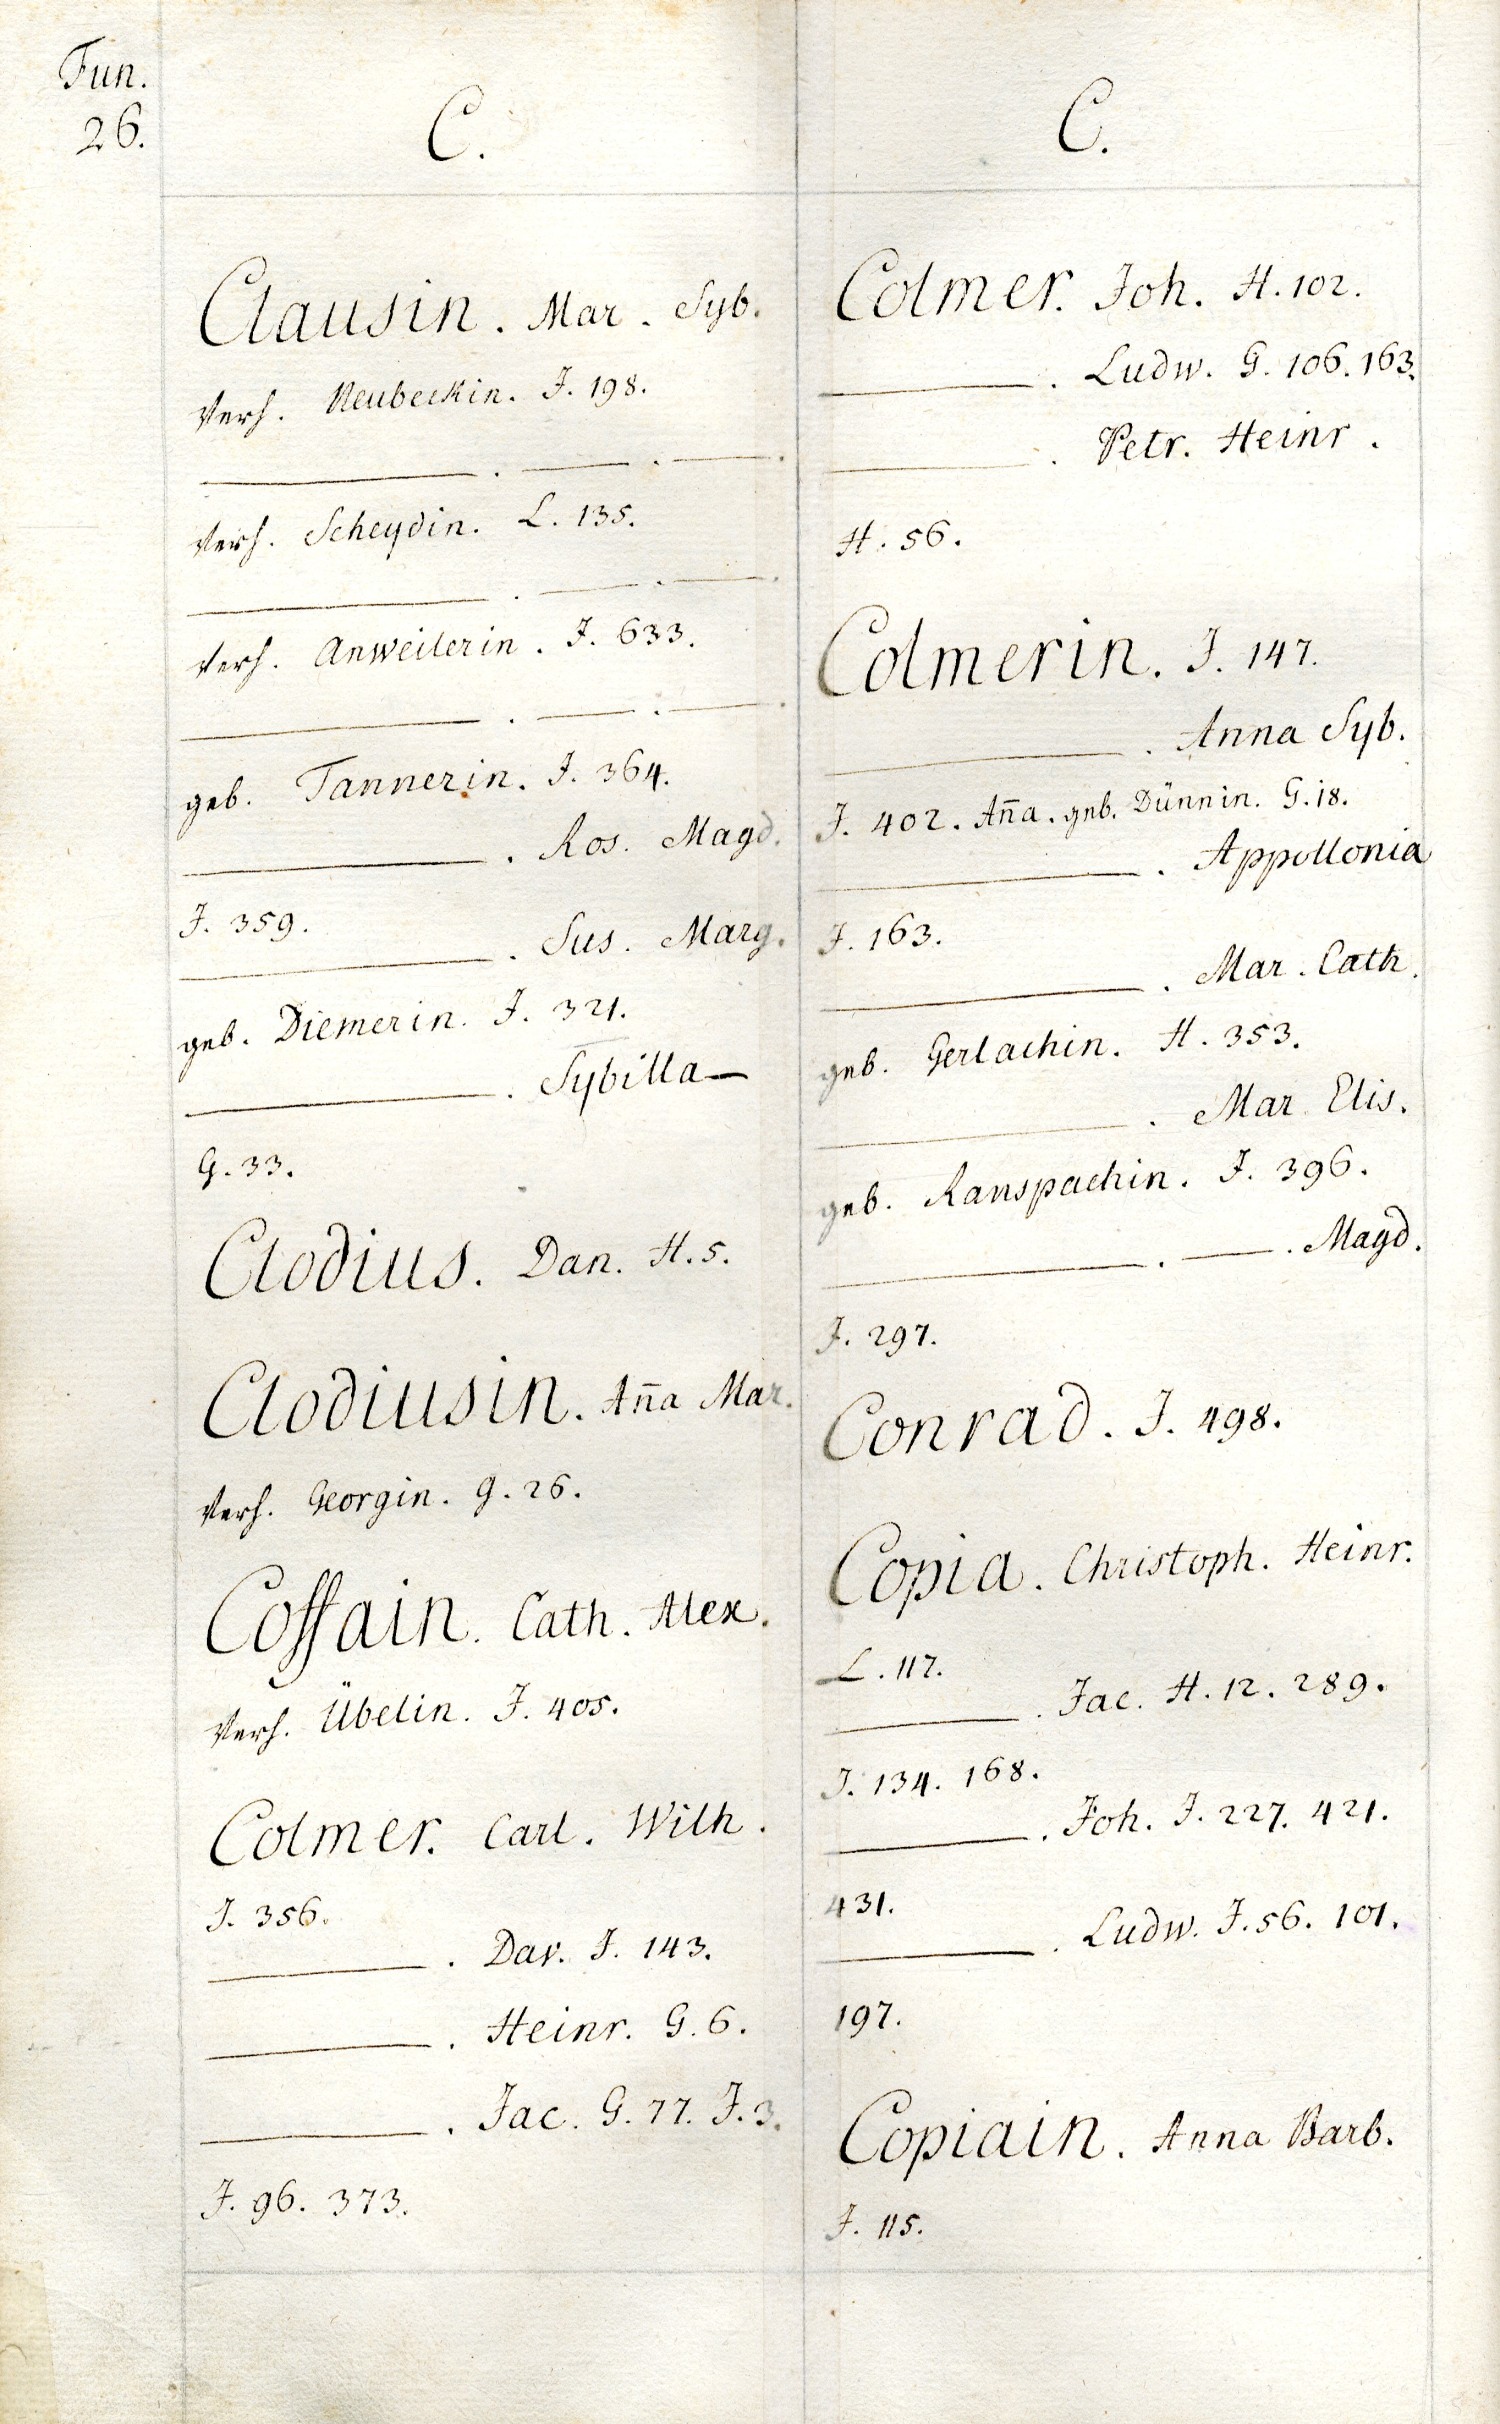 Fun.
26.
C.
Clausin. Mar. Syb.
Verh. Neubeckin. J. 198.
———. ———. ———.
Verh. Scheydin. L. 135.
———. ———. ———.
Verh. Anweilerin. J. 633.
———. ———. ———.
geb. Tannerin. J. 364.
———. Ros. Magd.
J. 359.
———. Sus. Marg.
geb. Diemerin. J. 321.
———. Sybilla—
G. 33.
Clodius. Dan. H. 5.
Clodiusin. Ana̅ Mar.
Verh. Georgin. G. 26.
Coffain. Cath. Alex.
Verh. Übelin. J. 405.
Colmer. Carl. Wilh.
J. 356.
———. Dav. J. 143.
———. Heinr. G. 6.
———. Jac. G. 77. J. 3.
J. 96. 373.
C.
Colmer. Joh. H. 102.
———. Ludw. G. 106. 163.
———. Petr. Heinr.
H. 56.
Colmerin. J. 147.
———. Anna Syb.
J. 402. An̅a. geb. Dünnin. G. 18.
———. Appollonia
J. 163.
———. Mar. Cath.
geb. Gerlachin. H. 353.
———. Mar. Elis.
geb. Ranspachin. J. 396.
———. ———. Magd.
J. 297.
Conrad. J. 498.
Copia. Christoph. Heinr.
L. 117.
———. Jac. H. 12. 289.
J. 134. 168.
———. Joh. J. 227. 421.
431.
———. Ludw. J. 56. 101.
197.
Copiain. Anna Barb.
J. 115.